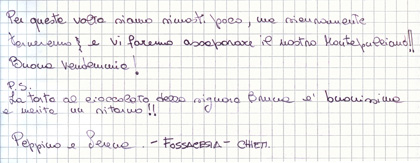 Per questa volta siamo rimasti poco, ma sicuramente
torneremo e vi faremo assaporare il nostro Montepulciano!!
Buona Vendemmia!
P.S.
La torta al cioccolato della signora Bruna e' buonissima
e merita un ritorno!!
Peppino e Serena. - FOSSACESIA - CHIETI.